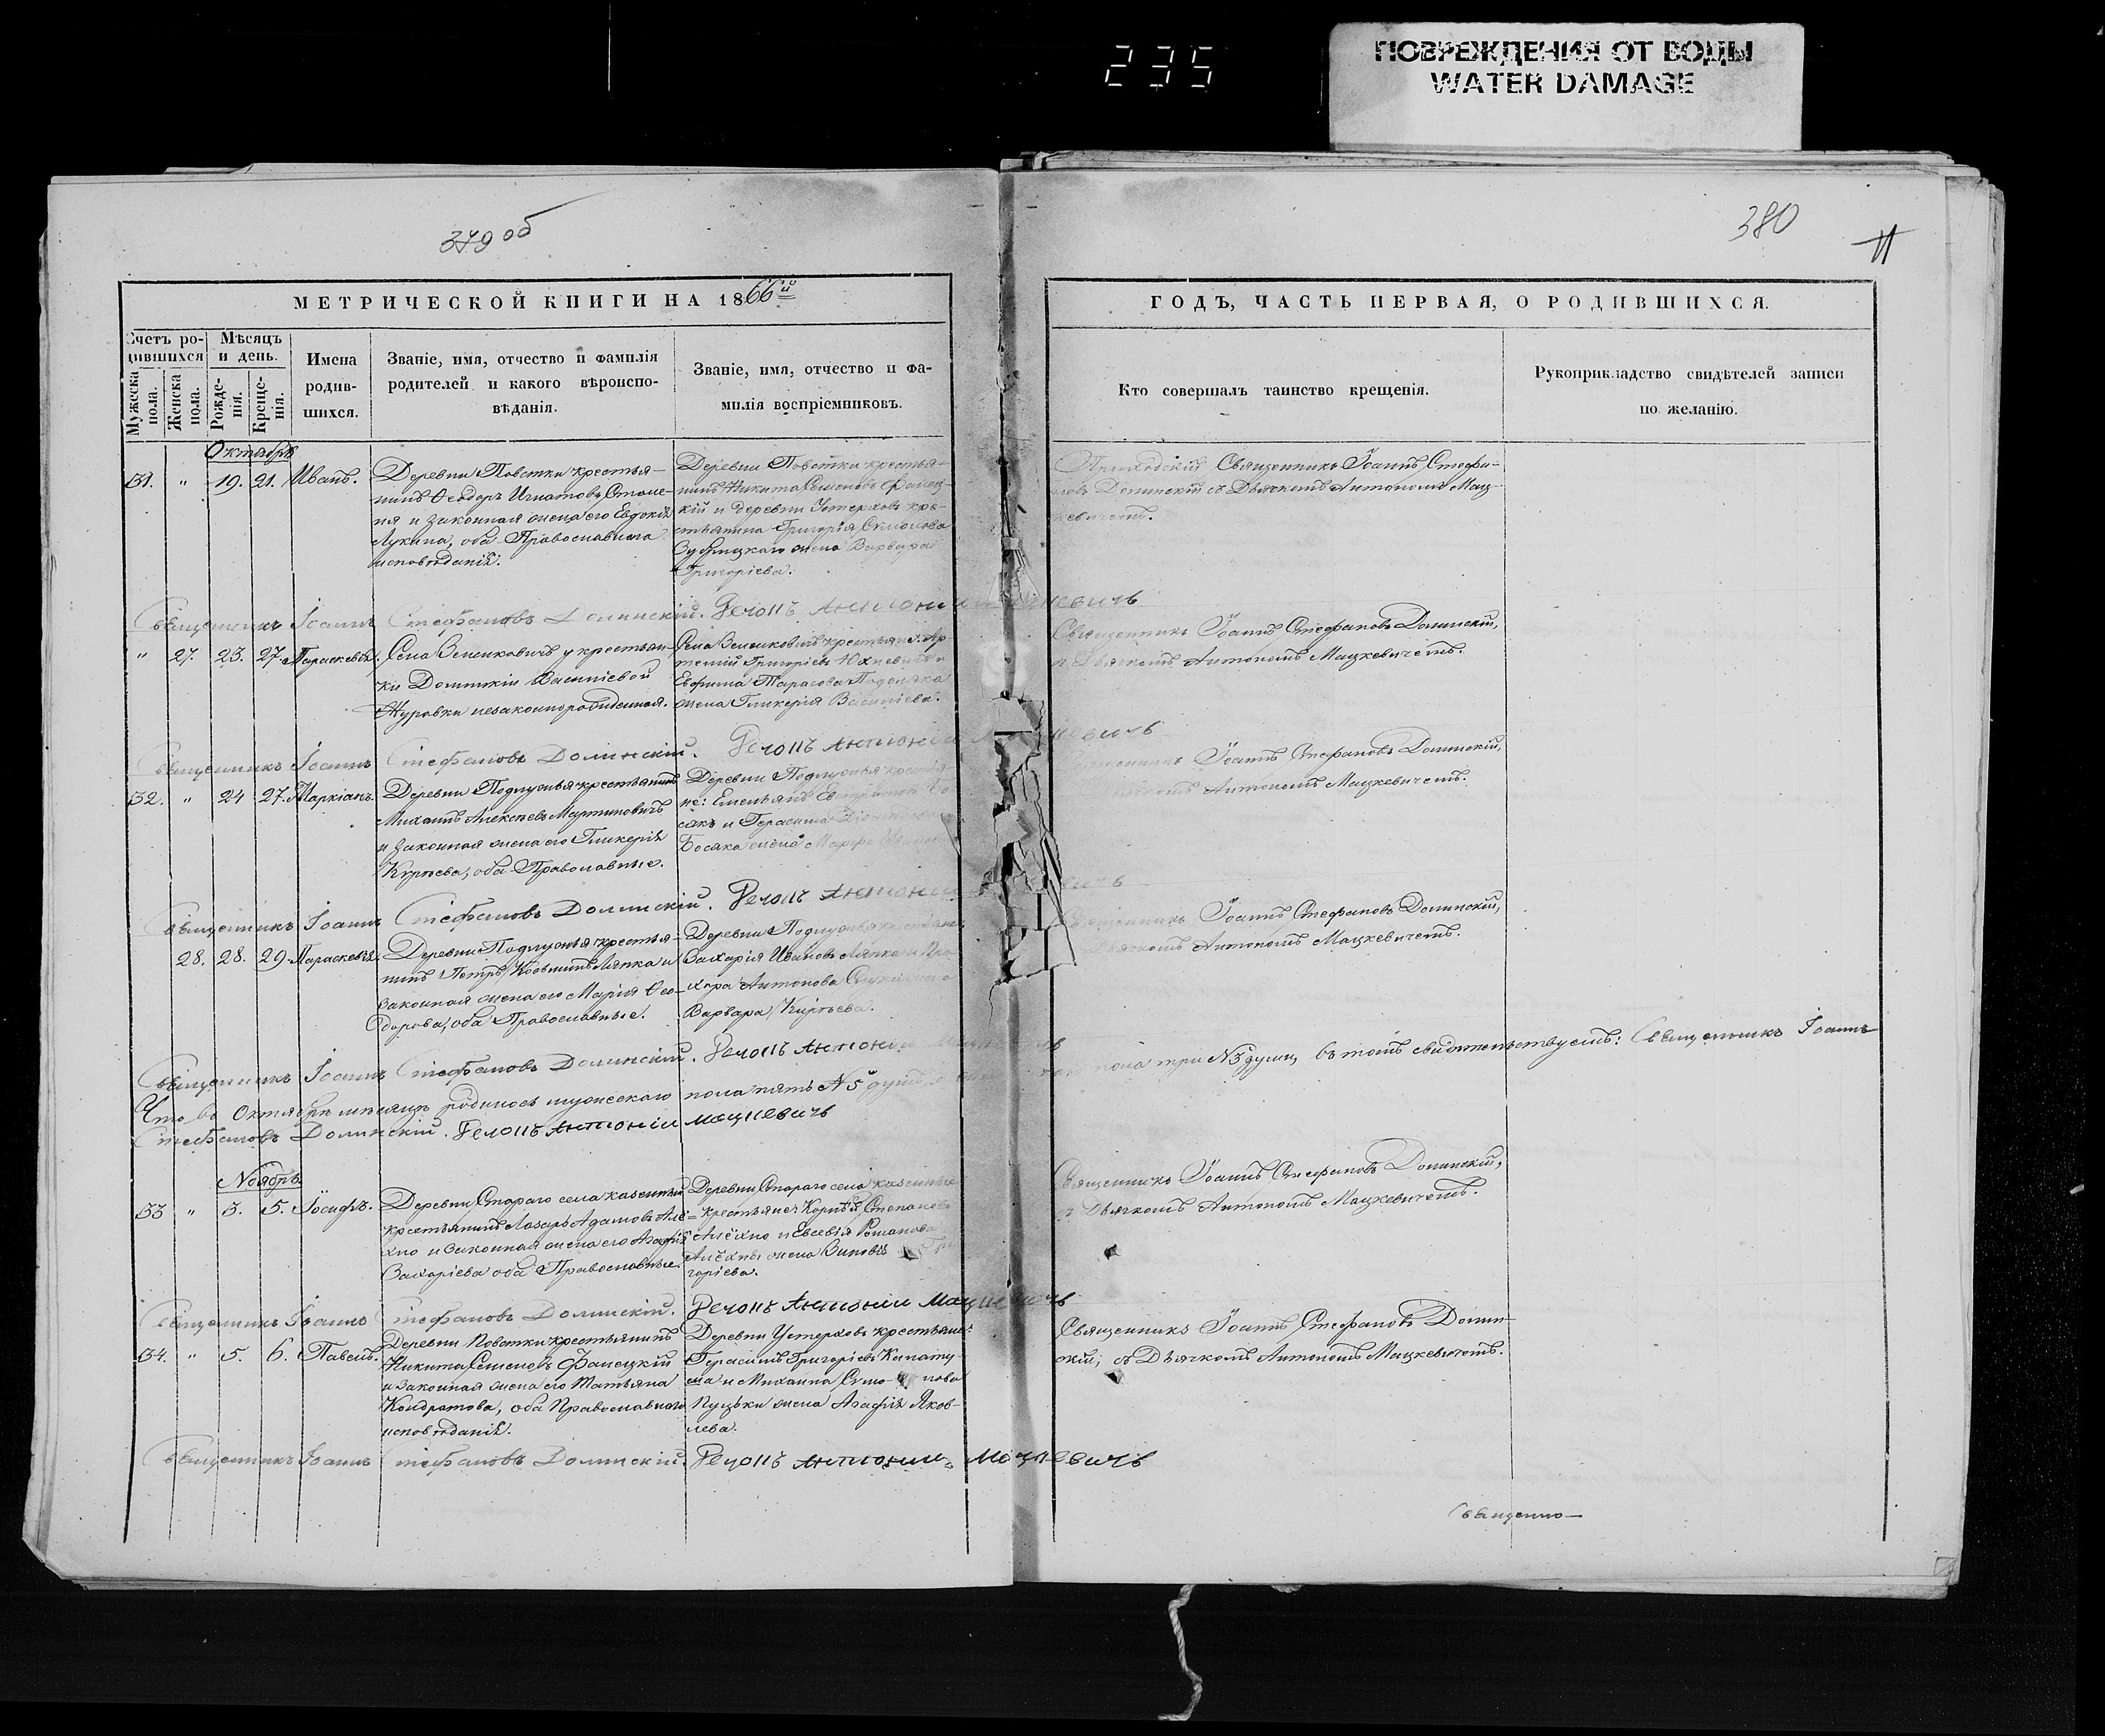 235
ПОВРЕЖДЕНИЯ ОТ ВОДЫ
WATER DAMAGE
379 об
380
МЕТРИЧЕСКОЙ КНИГИ НА 1866й
Счетъ родившихся
Мужеска пола.
Женска пола.
Мѣсяцъ и день.
Рожденія.
Крещенія.
Имена родившихся.
Званіе, имя, отчество и фамилія
родителей и какого вѣроиспо-
вѣданія.
Званіе, имя, отчество и фа-
милія воспріемниковъ.
ГОДЪ, ЧАСТЬ ПЕРВАЯ, О РОДИВШИХСЯ.
Кто совершалъ таинство крещенія.
Рукоприкладство свидѣтелей записи
по желанію.
Октябрь
31. " 19. 21. Иванъ.
Деревни Повстки крестья-
нинъ Ѳеодоръ Игнатовъ
и законная жена его Евдокія
Лукина, оба Православнаго
исповѣданія.
Деревни Повстки крестья-
нинъ Никита Семеновъ Фанец-
кій и деревни Устерховъ кре-
стьянина Григорія
жена Варвара
Григоріева.
Приходскій Священникъ Іоаннъ Стефа-
новъ Долинскій съ Дьячкомъ Антоніемъ Мац-
кевичемъ.
Священникъ Іоаннъ Стефановъ Долинскій. Дьячокъ Антоній
" 27. 23. 27. Параскевія.
Села Велюковичъ у крестьян-
ки Домникіи Василіевой
Журавки незаконнорожденная.
Села Велюковичъ крестьян. Ар-
темій Григоріевъ Юхневичъ и
Ефима Тарасова
жена Гликерія Василіева.
Священникъ Іоаннъ Стефановъ Долинскій,
съ Дьячкомъ Антоніемъ Мацкевичемъ.
Священникъ Іоаннъ Стефановъ Долинскій. Дьячокъ Антоній
32. " 24 27. Маркіанъ.
Деревни Подлужья крестьянинъ
Михаилъ Алексѣевъ Мартиновичъ
и законная жена его Гликерія
Кирѣева, оба Православные.
Деревни Подлужья крестья-
не: Емельянъ Бо-
сякъ и Герасима
Босяка жена Марфа
Священникъ Іоаннъ Стефановъ Долинскій,
Дьячкомъ Антоніемъ Мацкевичемъ.
Священникъ Іоаннъ Стефановъ Долинскій. Дьячокъ Антоній
28. 28. 29 Параскевія.
Деревни Подлужья крестья-
нинъ Петръ Козьминъ Ляпка и
законная жена его Марія Ѳео-
дорова, оба Православные.
Деревни Подлужья крестьяне:
Захарія Ивановъ Ляпка и Про-
хора Антонова
Варвара Кирѣева.
Священникъ Іоаннъ Стефановъ Долинскій,
Дьячкомъ Антоніемъ Мацкевичемъ.
Священникъ Іоаннъ Стефановъ Долинскій. Дьячокъ Антоній
Что въ Октябрѣ мѣсяцѣ родилось мужескаго пола пять № 5 душъ, а пола три № 3 души, въ томъ свидѣтельствуемъ: Священникъ Іоаннъ
Стефановъ Долинскій. Дьячокъ Антоній Мацкевичъ
Ноябрь
33 " 3. 5. Іосифъ.
Деревни Стараго села казенный
крестьянинъ Лазарь Адамовъ Алё-
хно и законная жена его Агафія
Захаріева оба Православные.
Деревни Стараго села казенные
крестьяне: Корнѣй Степановъ
Алёхно и Евсевія Романова
Алёхны жена Зиновія Гри-
горіева.
Священникъ Іоаннъ Стефановъ Долинскій,
съ Дьячкомъ Антоніемъ Мацкевичемъ.
Священникъ Іоаннъ Стефановъ Долинскій. Дьячокъ Антоній Мацкевичъ
34. " 5. 6. Павелъ.
Деревни Повстки крестьянинъ
Никита Семеновъ Фанецкій
и законная жена его Татьяна
Кондратова, оба Православнаго
исповѣданія.
Деревни Устерховъ крестьяне:
Герасимъ Григоріевъ
и Михаила
жена Агафія Яков-
лева.
Священникъ Іоаннъ Стефановъ Долин-
скій, съ Дьячкомъ Антоніемъ Мацкевичемъ.
Священникъ Іоаннъ Стефановъ Долинскій. Дьячокъ Антоній Мацкевичъ
Священно-